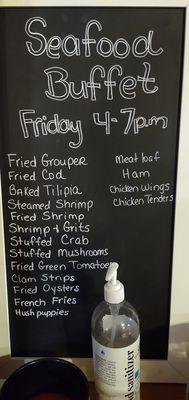 Seafood
Buffet
Friday 4-7p.m
Fried Grouper
Fried Cod
Baked Tilipia
Steamed Shrimp
Fried Shrimp
Shrimp & Grits
Stuffed Crab
Stuffed Mushrooms
Fried Green Tomatoes
Clam Strips
Fried Oysters
French Fries
Hushpuppies
Meat loaf
Ham
Chicken Wings
Chicken Tenders
sanitizer